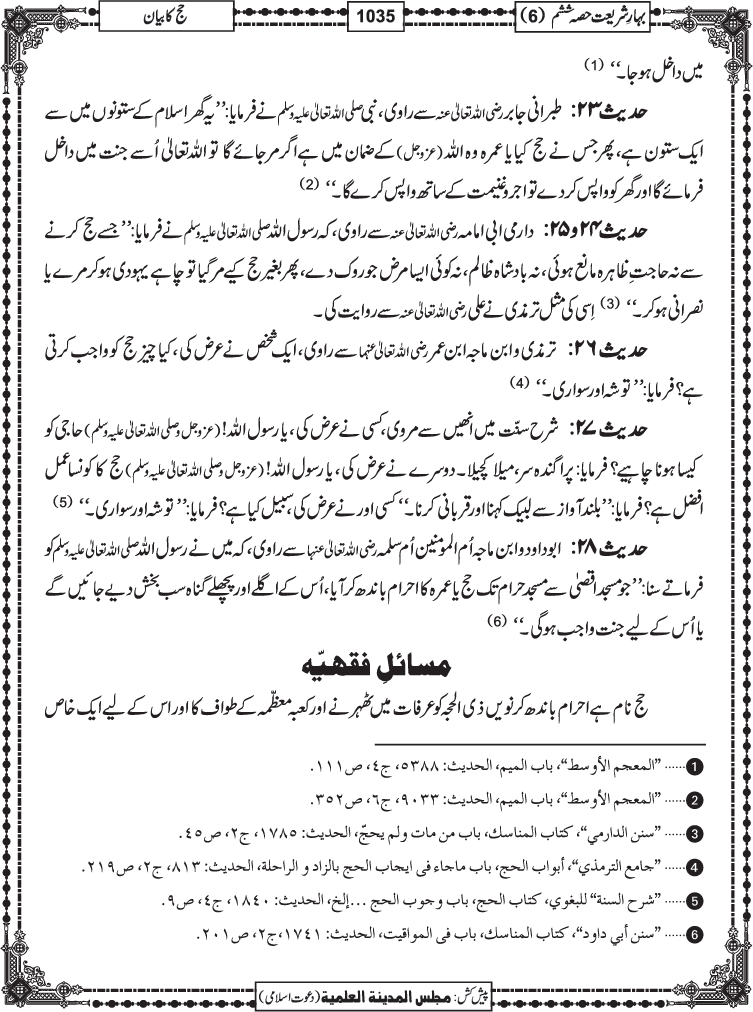 بہارِشریعت حصہ ششم (6)
1035
حج کا بیان
میں داخل ہو جا۔‘‘ (1)
حدیث ۲۳: طبرانی جابر رضی اللہ تعالیٰ عنہ سے راوی، نبی صلی اللہ تعالیٰ علیہ وسلم نے فرمایا: ’’یہ گھر اسلام کے ستونوں میں سے
ایک ستون ہے، پھر جس نے حج کیا یا عمرہ وہ اللہ (عزوجل) کے ضمان میں ہے اگر مر جائے گا تو اللہ تعالیٰ اُسے جنت میں داخل
فرمائے گا اور گھر کو واپس کر دے تو اجر و غنیمت کے ساتھ واپس کرے گا۔‘‘ (2)
حدیث ۲۴ و ۲۵: دارمی ابی امامہ رضی اللہ تعالیٰ عنہ سے راوی، کہ رسول اللہ صلی اللہ تعالیٰ علیہ وسلم نے فرمایا: ’’جسے حج کرنے
سے نہ حاجتِ ظاہرہ مانع ہوئی، نہ بادشاہ ظالم، نہ کوئی ایسا مرض جو روک دے، پھر بغیر حج کیے مر گیا تو چاہے یہودی ہو کر مرے یا
نصرانی ہو کر۔‘‘ (3) اِسی کی مثل ترمذی نے علی رضی اللہ تعالیٰ عنہ سے روایت کی۔
حدیث ۲۶: ترمذی و ابن ماجہ ابن عمر رضی اللہ تعالیٰ عنہما سے راوی، ایک شخص نے عرض کی، کیا چیز حج کو واجب کرتی
ہے؟ فرمایا: ’’توشہ اور سواری۔‘‘ (4)
حدیث ۲۷: شرح سنّت میں انھیں سے مروی، کسی نے عرض کی، یا رسول اللہ! (عزوجل و صلی اللہ تعالیٰ علیہ وسلم) حاجی کو
کیسا ہونا چاہیے؟ فرمایا: پراگندہ سر، میلا کچیلا۔ دوسرے نے عرض کی، یا رسول اللہ! (عزوجل و صلی اللہ تعالیٰ علیہ وسلم) حج کا کونسا عمل
افضل ہے؟ فرمایا: ’’بلند آواز سے لبیک کہنا اور قربانی کرنا۔‘‘ کسی اور نے عرض کی، سبیل کیا ہے؟ فرمایا: ’’توشہ اور سواری۔‘‘ (5)
حدیث ۲۸: ابوداود و ابن ماجہ اُم المومنین اُم سلمہ رضی اللہ تعالیٰ عنہا سے راوی، کہ میں نے رسول اللہ صلی اللہ تعالیٰ علیہ وسلم کو
فرماتے سنا: ’’جو مسجد اقصیٰ سے مسجد حرام تک حج یا عمرہ کا احرام باندھ کر آیا، اُس کے اگلے اور پچھلے گناہ سب بخش دیے جائیں گے
یا اُس کے لیے جنت واجب ہوگی۔‘‘ (6)
مسائلِ فقھیّه
حج نام ہے احرام باندھ کر نویں ذی الحجہ کو عرفات میں ٹھہرنے اور کعبہ معظّمہ کے طواف کا اور اس کے لیے ایک خاص
1 ...... ”المعجم الأوسط“، باب الميم، الحديث: ٥٣٨٨، ج٤، ص١١١.
2 ...... ”المعجم الأوسط“، باب الميم، الحديث: ٩٠٣٣، ج٦، ص٣٥٢.
3 ...... ”سنن الدارمي“، كتاب المناسك، باب من مات ولم يحجّ، الحديث: ١٧٨٥، ج٢، ص٤٥.
4 ...... ”جامع الترمذي“، أبواب الحج، باب ماجاء فى ايجاب الحج بالزاد و الراحلة، الحديث: ٨١٣، ج٢، ص٢١٩.
5 ...... ”شرح السنة“ للبغوي، كتاب الحج، باب وجوب الحج ...إلخ، الحديث: ١٨٤٠، ج٤، ص٩.
6 ...... ”سنن أبي داود“، كتاب المناسك، باب فى المواقيت، الحديث: ١٧٤١،ج٢، ص٢٠١.
پیش کش: مجلس المدینۃ العلمیۃ (دعوت اسلامی)